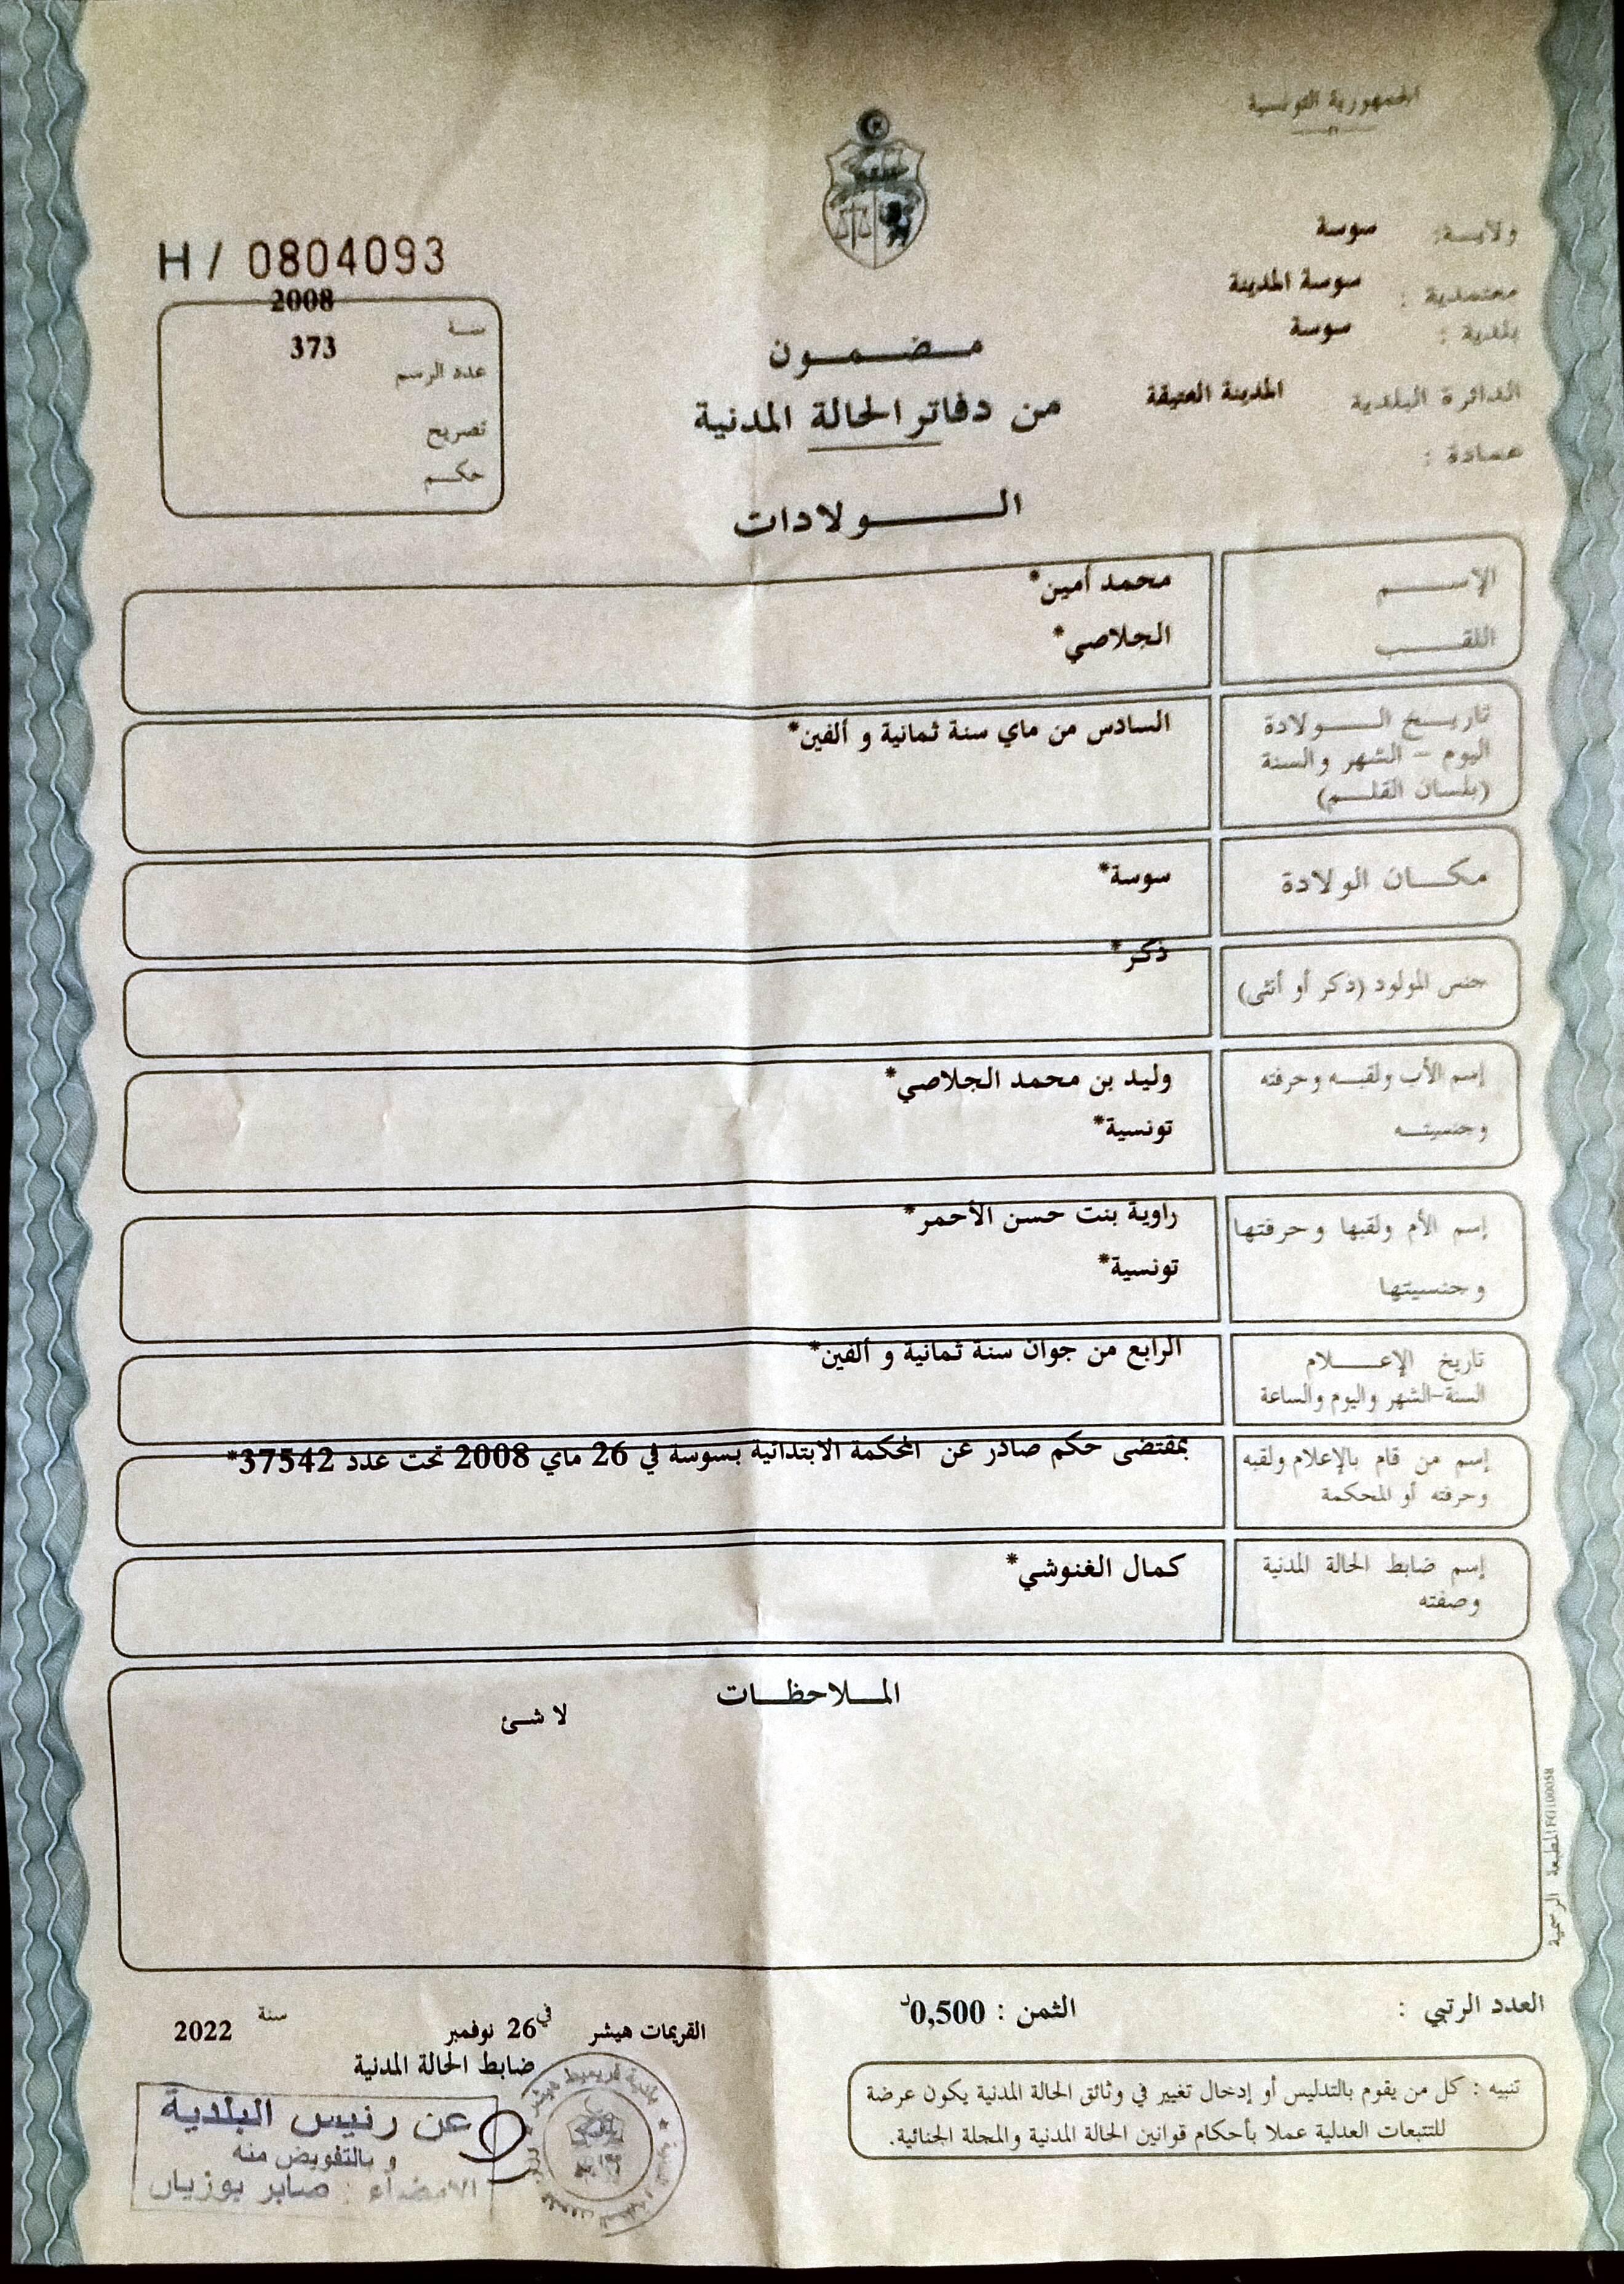 الجمهورية التونسية
ولايــة: سوسة
معتمدية : سوسة المدينة
بلدية : سوسة
الدائرة البلدية المدينة العتيقة
عمادة :
H / 0804093
2008
سنـة
373
عدد الرسم
تصريح
حكــم
مــضــمــون
من دفاتر الحالة المدنية
الــــولادات
الإســــم محمد أمين*
اللقــــب الجلاصي*
تاريــخ الــــولادة السادس من ماي سنة ثمانية و ألفين*
اليوم - الشهر والسنة
(بلسان القلــم)
مكــان الولادة سوسة*
جنس المولود (ذكر أو أنثى) ذكر*
إسم الأب ولقبــه وحرفته وليد بن محمد الجلاصي*
وجنسيتــه تونسية*
إسم الأم ولقبها وحرفتها راوية بنت حسن الأحمر*
وجنسيتها تونسية*
تاريخ الإعــــلام الرابع من جوان سنة ثمانية و ألفين*
السنة-الشهر واليوم والساعة
إسم من قام بالإعلام ولقبه بمقتضى حكم صادر عن المحكمة الابتدائية بسوسة في 26 ماي 2008 تحت عدد 37542*
وحرفته أو المحكمة
إسم ضابط الحالة المدنية كمال الغنوشي*
وصفته
المــلاحظــات
لا شئ
المطبعة الرسمية
العدد الرتبي :
الثمن : 0,500د
القريمات هيشر في 26 نوفمبر سنة 2022
ضابط الحالة المدنية
عن رئيس البلدية
و بالتفويض منه
الامضاء : صابر بوزيان
تنبيه : كل من يقوم بالتدليس أو إدخال تغيير في وثائق الحالة المدنية يكون عرضة
للتتبعات العدلية عملا بأحكام قوانين الحالة المدنية والمجلة الجنائية.